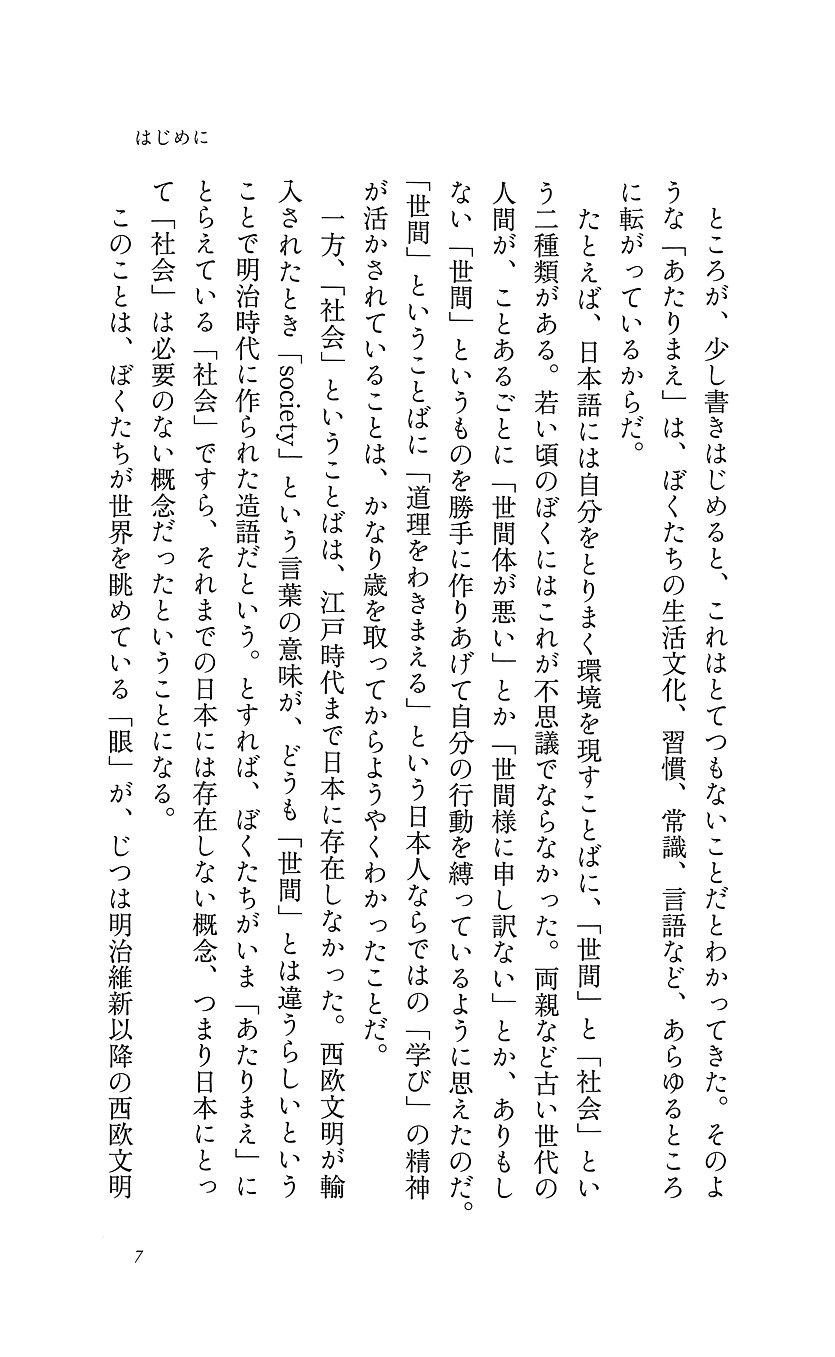 はじめに
ところが、少し書きはじめると、これはとてつもないことだとわかってきた。そのよ
うな「あたりまえ」は、ぼくたちの生活文化、習慣、常識、言語など、あらゆるところ
に転がっているからだ。
たとえば、日本語には自分をとりまく環境を現すことばに、「世間」と「社会」とい
う二種類がある。若い頃のぼくにはこれが不思議でならなかった。両親など古い世代の
人間が、ことあるごとに「世間体が悪い」とか「世間様に申し訳ない」とか、ありもし
ない「世間」というものを勝手に作りあげて自分の行動を縛っているように思えたのだ。
「世間」ということばに「道理をわきまえる」という日本人ならではの「学び」の精神
が活かされていることは、かなり歳を取ってからようやくわかったことだ。
一方、「社会」ということばは、江戸時代まで日本に存在しなかった。西欧文明が輸
入されたとき「society」という言葉の意味が、どうも「世間」とは違うらしいという
ことで明治時代に作られた造語だという。とすれば、ぼくたちがいま「あたりまえ」に
とらえている「社会」ですら、それまでの日本には存在しない概念、つまり日本にとっ
て「社会」は必要のない概念だったということになる。
このことは、ぼくたちが世界を眺めている「眼」が、じつは明治維新以降の西欧文明
7